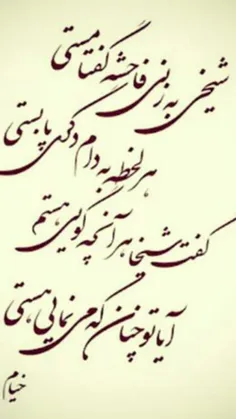 شیخی به زنی فاحشه گفتا مستی
هر لحظه به دام دگری پابستی
گفت شیخا هر آنچه گویی هستم
آیا تو چنان که می نمایی هستی
خیام